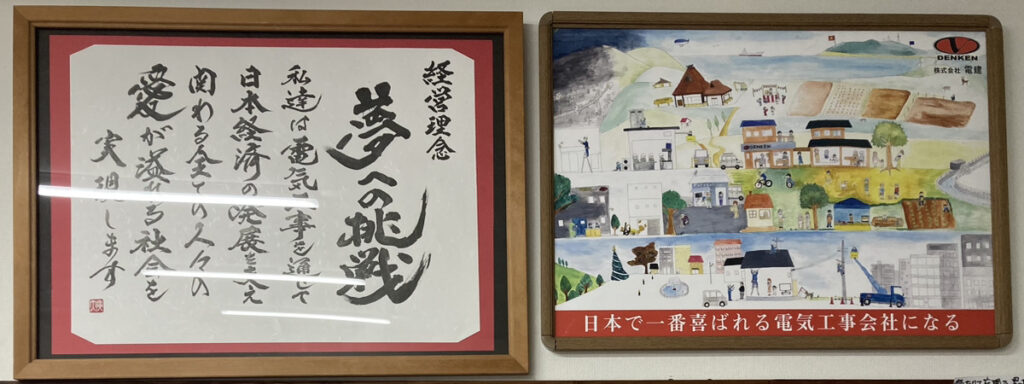 経営理念
夢への挑戦
私達は電気工事を通して
日本経済の発展を支え
関わる全ての人々の
愛が溢れる社会を
実現します
DENKEN
株式会社 電建
DENKEN
日本で一番喜ばれる電気工事会社になる